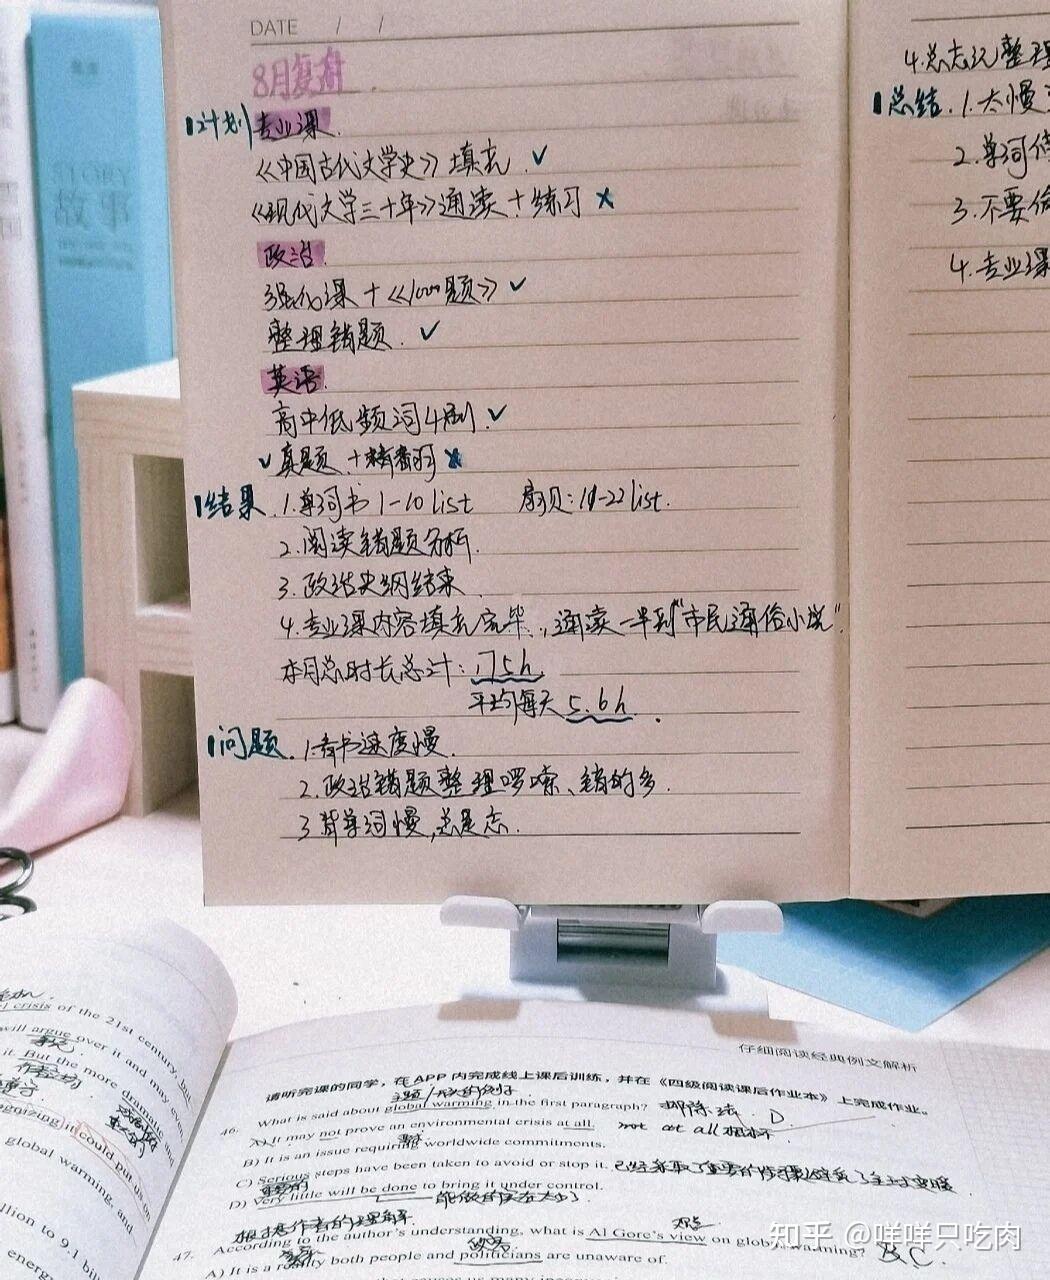 DATE / /
8月复盘
计划 专业课
《中国古代文学史》填充 ✓
《现代文学三十年》通读+练习 ×
政治
强化课+《1000题》✓
整理错题 ✓
英语
高中低频词4刷 ✓
✓真题+精翻 ×
结果 1.单词书 1-10 list 扇贝:19-22 list.
2.阅读错题分析.
3.政治史纲结束.
4.专业课内容填充完毕,通读一半到"市民通俗小说".
本月总时长总计:175h.
平均每天5.6h.
问题 1.背书速度慢.
2.政治错题整理啰嗦、错的多.
3.背单词慢,总是忘.
4.总忘记整理
总结.1.太慢
2.单词
3.不要偷
4.专业课
STORY
故事
crisis of the 21st century, but
will argue over it and may even
it. But the more dramatic
could put us on
global warming, and
llion to 9.1 bill
energ
仔细阅读经典例文解析
请听完课的同学,在APP内完成线上课后训练,并在《四级阅读课后作业本》上完成作业。
46. What is said about global warming in the first paragraph? D
A) It may not prove an environmental crisis at all. not at all 根本不
B) It is an issue requiring worldwide commitments.
C) Serious steps have been taken to avoid or stop it.
D) Very little will be done to bring it under control.
根据作者的理解
47. According to the author's understanding, what is Al Gore's view on global warming? B C
A) It is a reality both people and politicians are unaware of.
知乎 @咩咩只吃肉